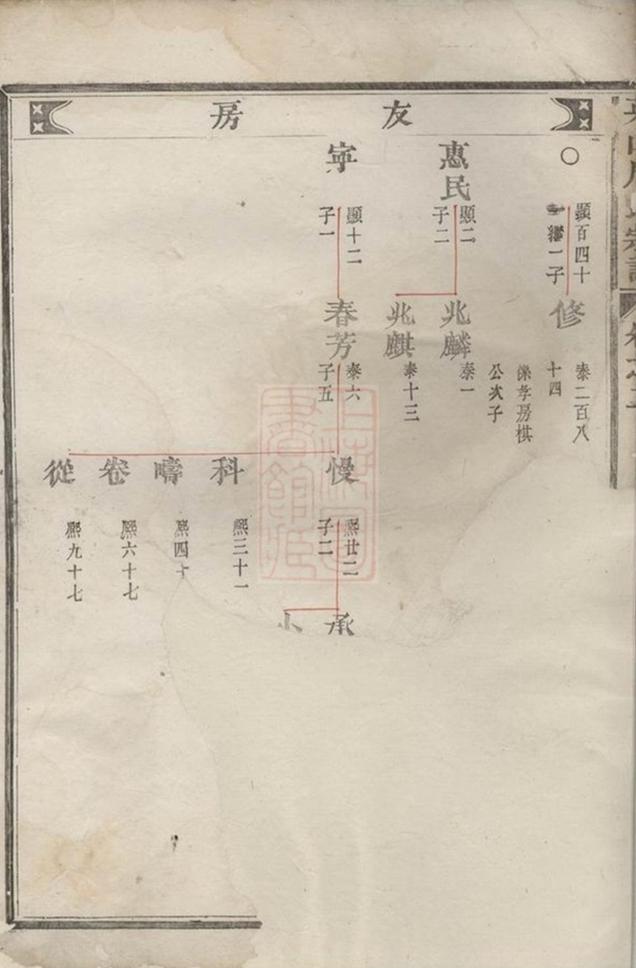 友房
○
顯百四十
繼一子
修
泰二百八
十四
係孝房棋
公次子
惠民
顯二
子二
兆麟
泰一
兆麒
泰十三
寧
顯十二
子一
春芳
泰六
子五
慢
熙廿二
子二
承
科
熙三十一
疇
熙四十
卷
熙六十七
從
熙九十七